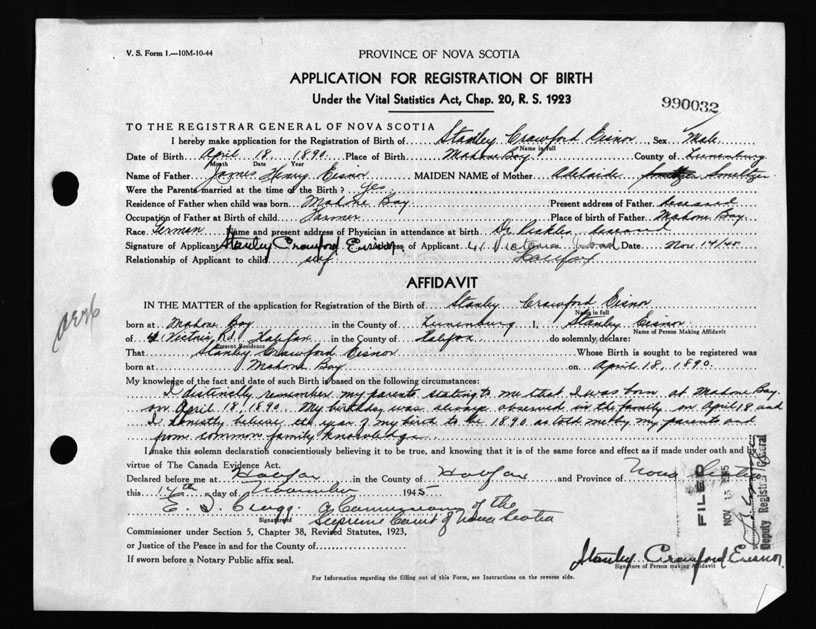 V. S. Form 1.—10M-10-44
PROVINCE OF NOVA SCOTIA
APPLICATION FOR REGISTRATION OF BIRTH
Under the Vital Statistics Act, Chap. 20, R. S. 1923
990032
TO THE REGISTRAR GENERAL OF NOVA SCOTIA
I hereby make application for the Registration of Birth of Stanley Crawford Eisnor Sex Male
Name in full
Date of Birth April 18, 1890 Place of Birth Mahone Bay County of Lunenburg
Month Date Year
Name of Father James Henry Eisnor MAIDEN NAME of Mother Adelaide Smeltzer
Were the Parents married at the time of the Birth? Yes
Residence of Father when child was born Mahone Bay Present address of Father deceased
Occupation of Father at Birth of child Farmer Place of birth of Father Mahone Bay
Race German Name and present address of Physician in attendance at birth Dr. Pickles, deceased
Signature of Applicant Stanley Crawford Eisnor Address of Applicant 41 Victoria Road Date Nov. 14/45
Relationship of Applicant to child self Halifax
AFFIDAVIT
IN THE MATTER of the application for Registration of the Birth of Stanley Crawford Eisnor
Name in full
born at Mahone Bay in the County of Lunenburg I, Stanley Eisnor
Name of Person Making Affidavit
of 41 Victoria Rd., Halifax in the County of Halifax do solemnly declare:
Present Residence
That Stanley Crawford Eisnor Whose Birth is sought to be registered was
born at Mahone Bay on April 18, 1890
My knowledge of the fact and date of such Birth is based on the following circumstances:
I distinctly remember my parents stating to me that I was born at Mahone Bay
on April 18, 1890. My birthday was always observed in the family on April 18 and
I honestly believe the year of my birth to be 1890 as told me by my parents and
from common family knowledge.
I make this solemn declaration conscientiously believing it to be true, and knowing that it is of the same force and effect as if made under oath and by
virtue of The Canada Evidence Act.
Declared before me at Halifax in the County of Halifax and Province of Nova Scotia
this 14th day of November 1945
E. J. Cragg A Commissioner of the
Signature of Supreme Court of Nova Scotia
Commissioner under Section 5, Chapter 38, Revised Statutes, 1923,
or Justice of the Peace in and for the County of
If sworn before a Notary Public affix seal.
FILED
NOV 15 1945
Deputy Registrar General
Stanley Crawford Eisnor
Signature of Person making Affidavit
For Information regarding the filling out of this Form, see Instructions on the reverse side.